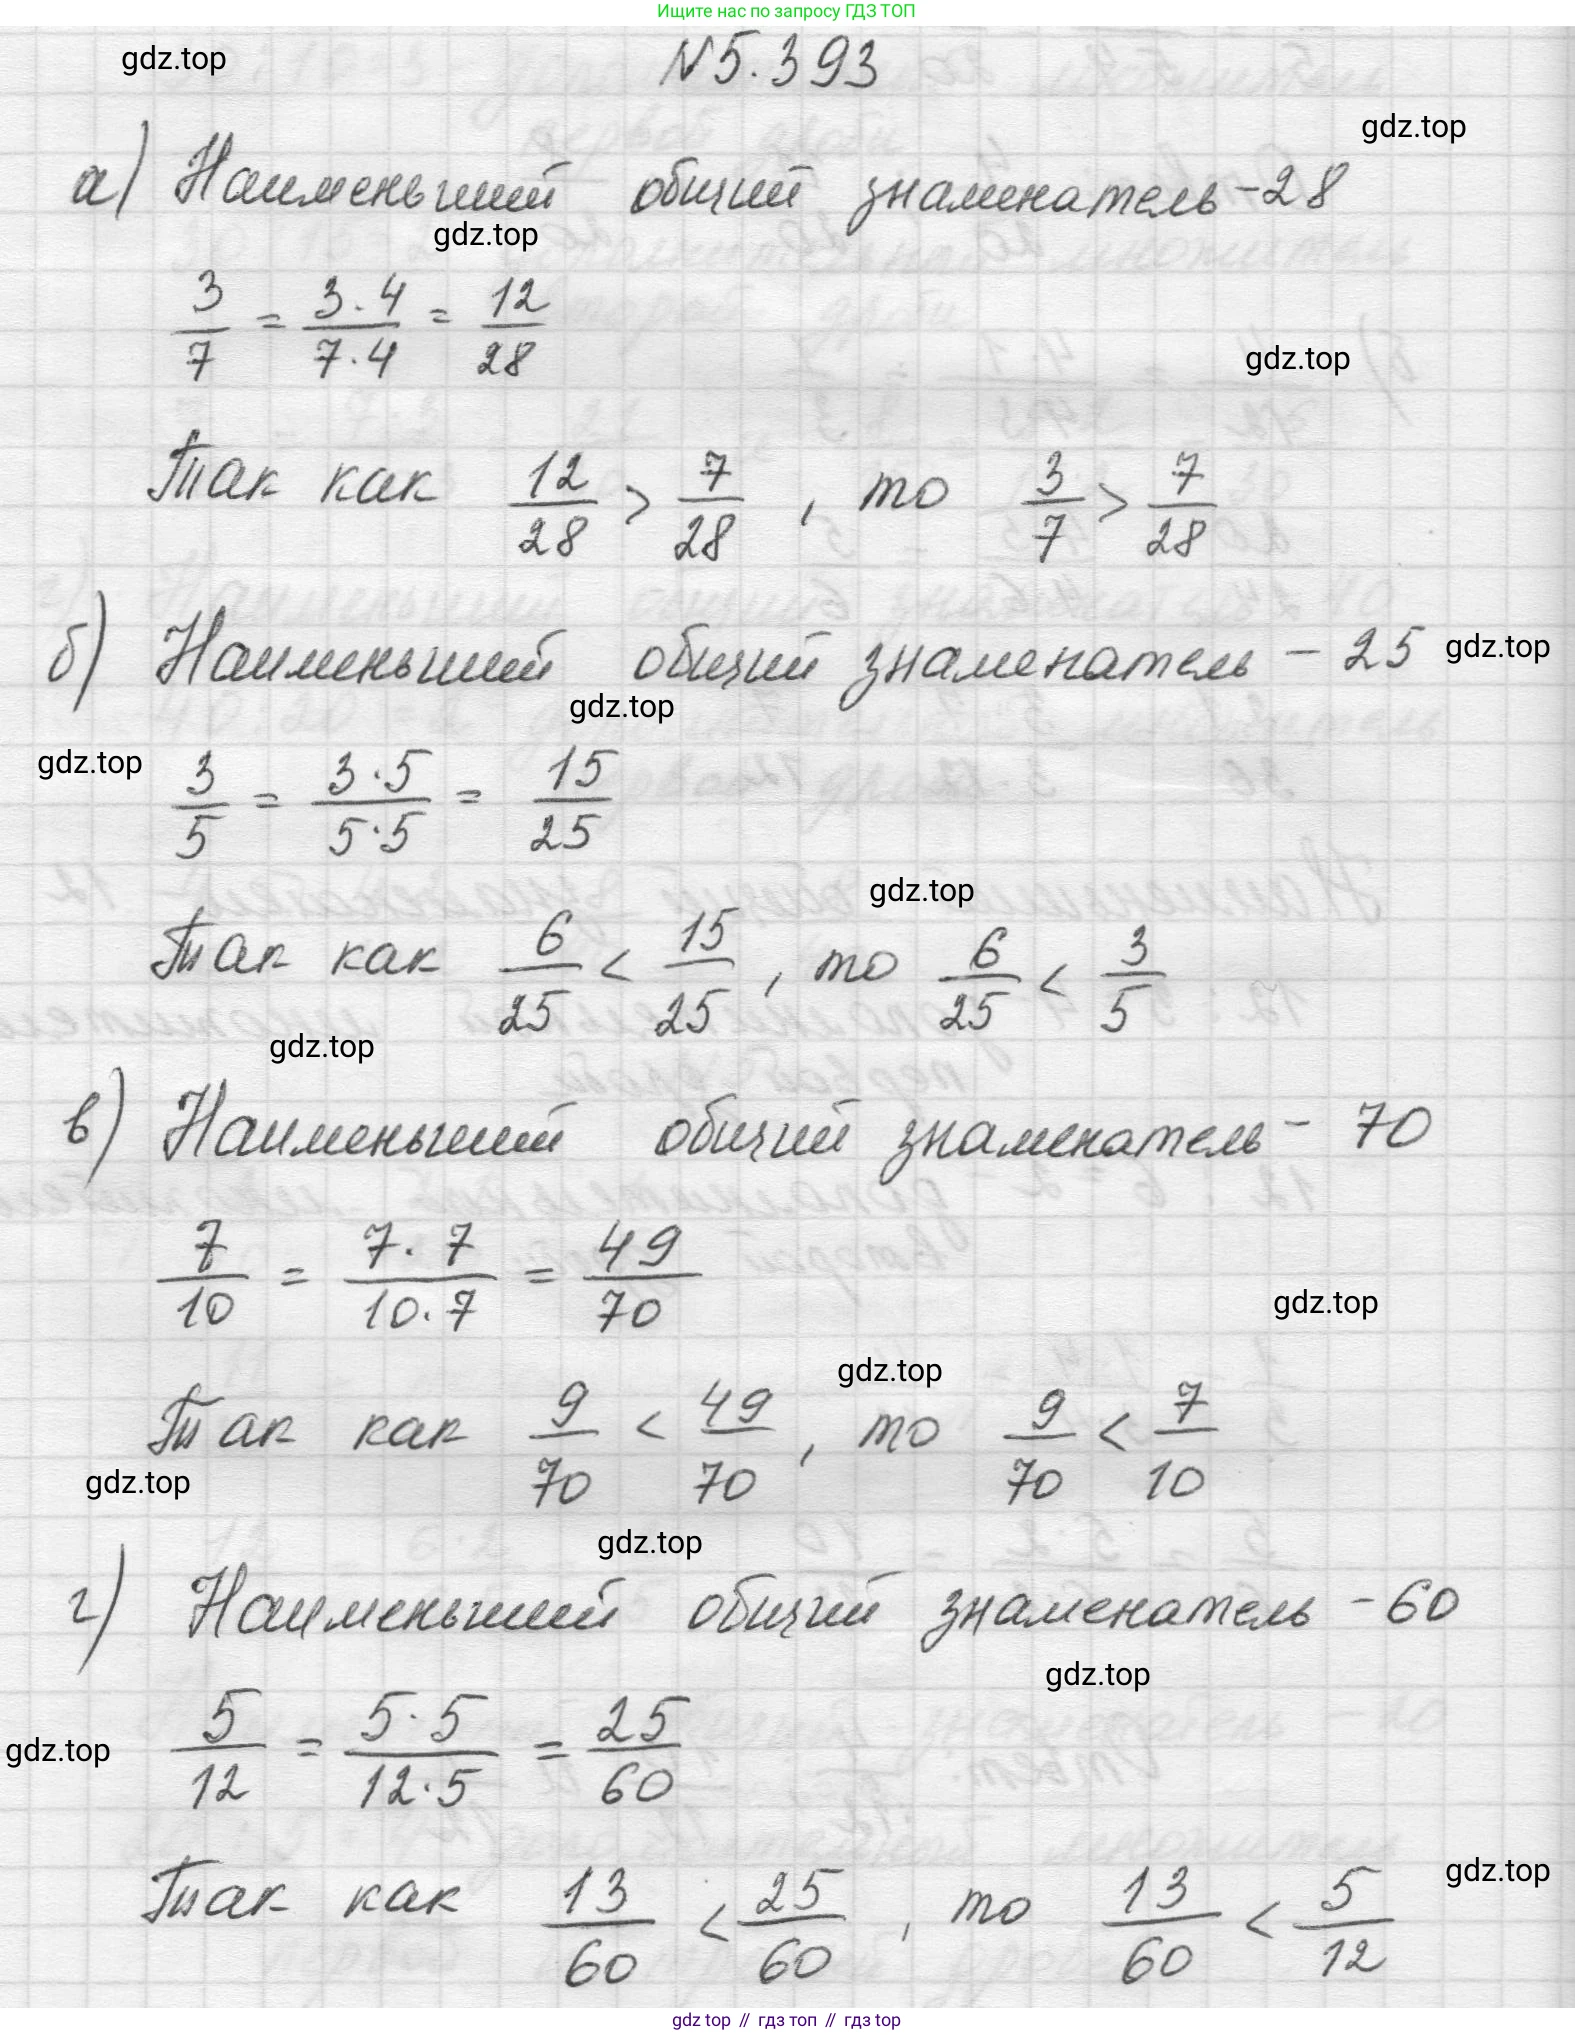 Ищите нас по запросу ГДЗ ТОП
gdz.top
№5.393
gdz.top
а) Наименьший общий знаменатель - 28
gdz.top
3/7 = 3·4/7·4 = 12/28
gdz.top
Так как 12/28 > 7/28, то 3/7 > 7/28
б) Наименьший общий знаменатель - 25
gdz.top
gdz.top
gdz.top
3/5 = 3·5/5·5 = 15/25
gdz.top
Так как 6/25 < 15/25, то 6/25 < 3/5
gdz.top
в) Наименьший общий знаменатель - 70
7/10 = 7·7/10·7 = 49/70
gdz.top
gdz.top
Так как 9/70 < 49/70, то 9/70 < 7/10
gdz.top
gdz.top
г) Наименьший общий знаменатель - 60
gdz.top
gdz.top
5/12 = 5·5/12·5 = 25/60
gdz.top
Так как 13/60 < 25/60, то 13/60 < 5/12
gdz top // гдз топ // гдз top